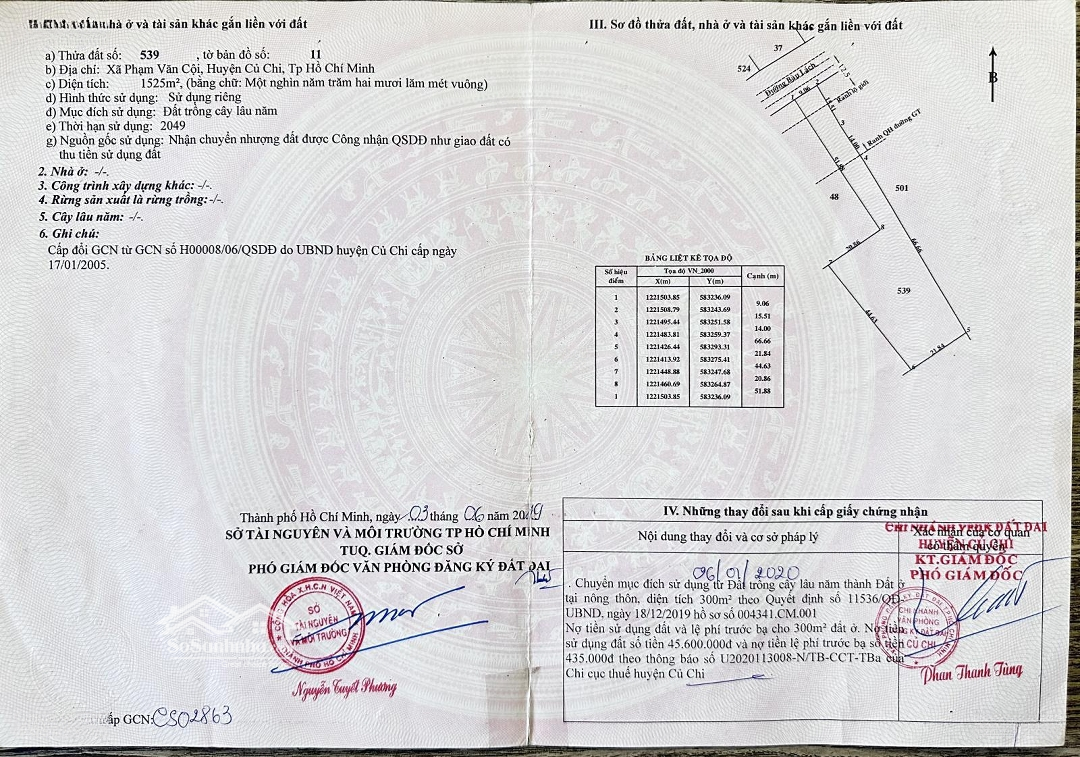 nhà ở và tài sản khác gắn liền với đất
a) Thửa đất số: 539 , tờ bản đồ số: 11
b) Địa chỉ: Xã Phạm Văn Cội, Huyện Củ Chi, Tp Hồ Chí Minh
c) Diện tích: 1525m², (bằng chữ: Một nghìn năm trăm hai mươi lăm mét vuông)
d) Hình thức sử dụng: Sử dụng riêng
đ) Mục đích sử dụng: Đất trồng cây lâu năm
e) Thời hạn sử dụng: 2049
g) Nguồn gốc sử dụng: Nhận chuyển nhượng đất được Công nhận QSDĐ như giao đất có
thu tiền sử dụng đất
2. Nhà ở: -/-.
3. Công trình xây dựng khác: -/-.
4. Rừng sản xuất là rừng trồng:-/-.
5. Cây lâu năm: -/-.
6. Ghi chú:
Cấp đổi GCN từ GCN số H00008/06/QSDĐ do UBND huyện Củ Chi cấp ngày
17/01/2005.
Thành phố Hồ Chí Minh, ngày 03 tháng 06 năm 2019
SỞ TÀI NGUYÊN VÀ MÔI TRƯỜNG TP HỒ CHÍ MINH
TUQ. GIÁM ĐỐC SỞ
PHÓ GIÁM ĐỐC VĂN PHÒNG ĐĂNG KÝ ĐẤT ĐAI
CỘNG HÒA X.H.C.N VIỆT NAM
SỞ
TÀI NGUYÊN
VÀ MÔI TRƯỜNG
THÀNH PHỐ HỒ CHÍ MINH
Nguyễn Tuyết Phương
cấp GCN: CS02863
III. Sơ đồ thửa đất, nhà ở và tài sản khác gắn liền với đất
37
524
Đường Bàu Lách
12.5
B
1
9.06
2
Ranh lộ giới
3
14.00
Ranh QH đường GT
4
51.88
48
501
8
20.86
7
66.66
539
44.63
5
21.84
6
BẢNG LIỆT KÊ TỌA ĐỘ
Số hiệu điểm Tọa độ VN_2000 Cạnh (m)
X(m) Y(m)
1 1221503.85 583236.09
9.06
2 1221508.79 583243.69
15.51
3 1221495.44 583251.58
14.00
4 1221483.81 583259.37
66.66
5 1221426.44 583293.31
21.84
6 1221413.92 583275.41
44.63
7 1221448.88 583247.68
20.86
8 1221460.69 583264.87
51.88
1 1221503.85 583236.09
IV. Những thay đổi sau khi cấp giấy chứng nhận
Nội dung thay đổi và cơ sở pháp lý
Xác nhận của cơ quan
có thẩm quyền
CHI NHÁNH VPĐK ĐẤT ĐAI
HUYỆN CỦ CHI
KT.GIÁM ĐỐC
PHÓ GIÁM ĐỐC
06/01/2020
. Chuyển mục đích sử dụng từ Đất trồng cây lâu năm thành Đất ở
tại nông thôn, diện tích 300m² theo Quyết định số 11536/QĐ-
UBND, ngày 18/12/2019 hồ sơ số 004341.CM.001
Nợ tiền sử dụng đất và lệ phí trước bạ cho 300m² đất ở. Nợ tiền
sử dụng đất số tiền 45.600.000đ và nợ tiền lệ phí trước bạ số tiền
435.000đ theo thông báo số U2020113008-N/TB-CCT-TBa của
Chi cục thuế huyện Củ Chi
CHI NHÁNH
VĂN PHÒNG
ĐĂNG KÝ ĐẤT ĐAI
CỦ CHI
Phan Thanh Tùng